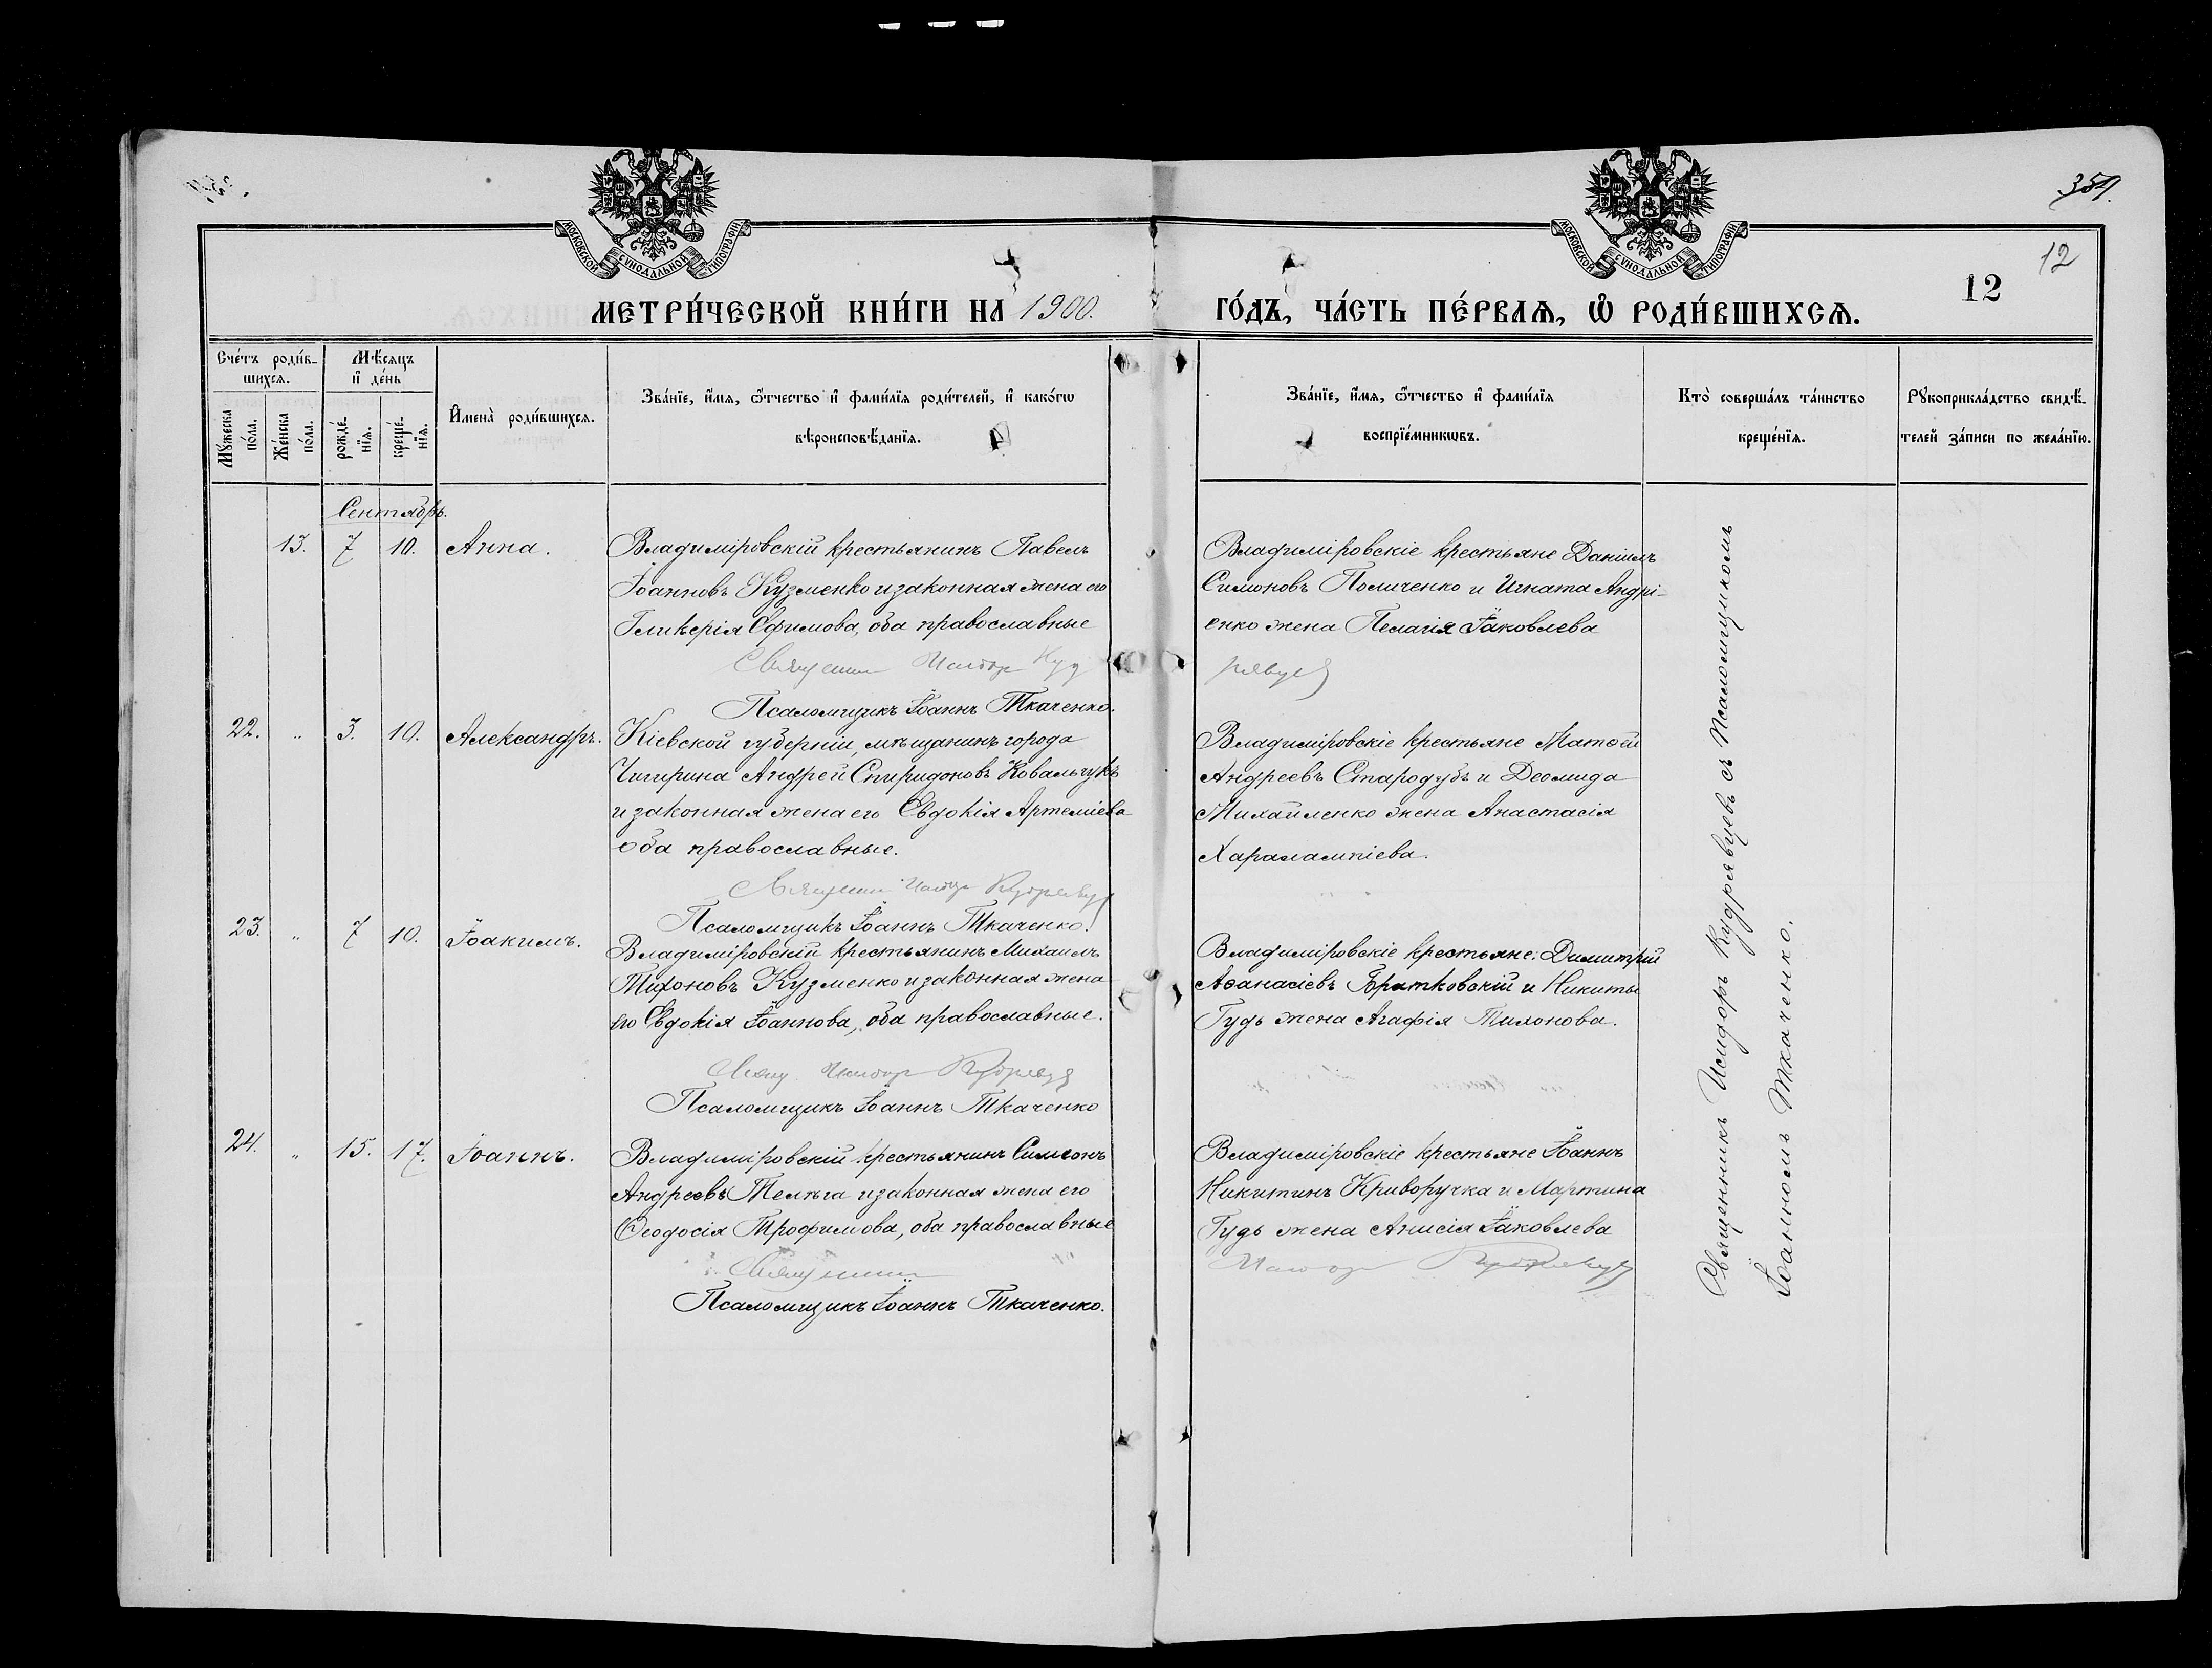 354.
12
12
МОСКОВСКОЙ СѴНОДАЛЬНОЙ ТИПОГРАФІИ
МОСКОВСКОЙ СѴНОДАЛЬНОЙ ТИПОГРАФІИ
МЕТРИ́ЧЕСКОЙ КНИ́ГИ НА 1900. ГО́ДЪ, ЧА́СТЬ ПЕ́РВАѦ, Ѽ РОДИ́ВШИХСѦ.
Сче́тъ роди́в-
шихсѧ.
Мꙋ́жеска по́ла.
Же́нска по́ла.
Мѣ́сѧцъ
и҆ де́нь
рожде́-
нїѧ.
креще́-
нїѧ.
И҆мена̀ роди́вшихсѧ.
Зва́нїе, и҆́мѧ, ѻ҆́тчество и҆ фами́лїѧ роди́телей, и҆ како́гѡ
вѣроисповѣ́данїѧ.
Зва́нїе, и҆́мѧ, ѻ҆́тчество и҆ фами́лїѧ
воспрїе́мникѡвъ.
Кто̀ соверша́лъ та́инство
креще́нїѧ.
Рꙋкоприкла́дство свидѣ́-
телей за́писи по жела́нїю.
Сентябрь.
13. 7 10. Анна.
Владиміровскій крестьянинъ Павелъ
Іоанновъ Кузменко и законная жена его
Гликерія Ефимова, оба православные
Священник Исидор Кудрявцев
Псаломщикъ Іоаннъ Ткаченко.
Владиміровскіе крестьяне Даніилъ
Симоновъ Поличенко и Игната Андрі-
енко жена Пелагія Іаковлева
22. „ 3. 10. Александръ.
Кіевской губерніи, мѣщанинъ города
Чигирина Андрей Спиридоновъ Ковальчукъ
и законная жена его Евдокія Артеміева
оба православные.
Священник Исидор Кудрявцев
Псаломщикъ Іоаннъ Ткаченко.
Владиміровскіе крестьяне Матѳей
Андреевъ Стародубъ и Деомида
Михайленко жена Анастасія
Харалампіева.
23. „ 7 10. Іоакимъ.
Владиміровскій крестьянинъ Михаилъ
Тихоновъ Кузменко и законная жена
его Евдокія Іоаннова, оба православные.
Свящ. Исидор Кудрявцев
Псаломщикъ Іоаннъ Ткаченко
Владиміровскіе крестьяне: Димитрій
Аѳанасіевъ Братковскій и Никиты
Гудь жена Агафія Тихонова.
24. „ 15. 17. Іоаннъ.
Владиміровскій крестьянинъ Симеонъ
Андреевъ Телѣга и законная жена его
Ѳеодосія Трофимова, оба православные
Священник Исидор Кудрявцев
Псаломщикъ Іоаннъ Ткаченко.
Владиміровскіе крестьяне Іоаннъ
Никитинъ Криворучка и Мартина
Гудь жена Анисія Іаковлева
Священникъ Исидоръ Кудрявцевъ съ Псаломщикомъ
Іоанномъ Ткаченко.